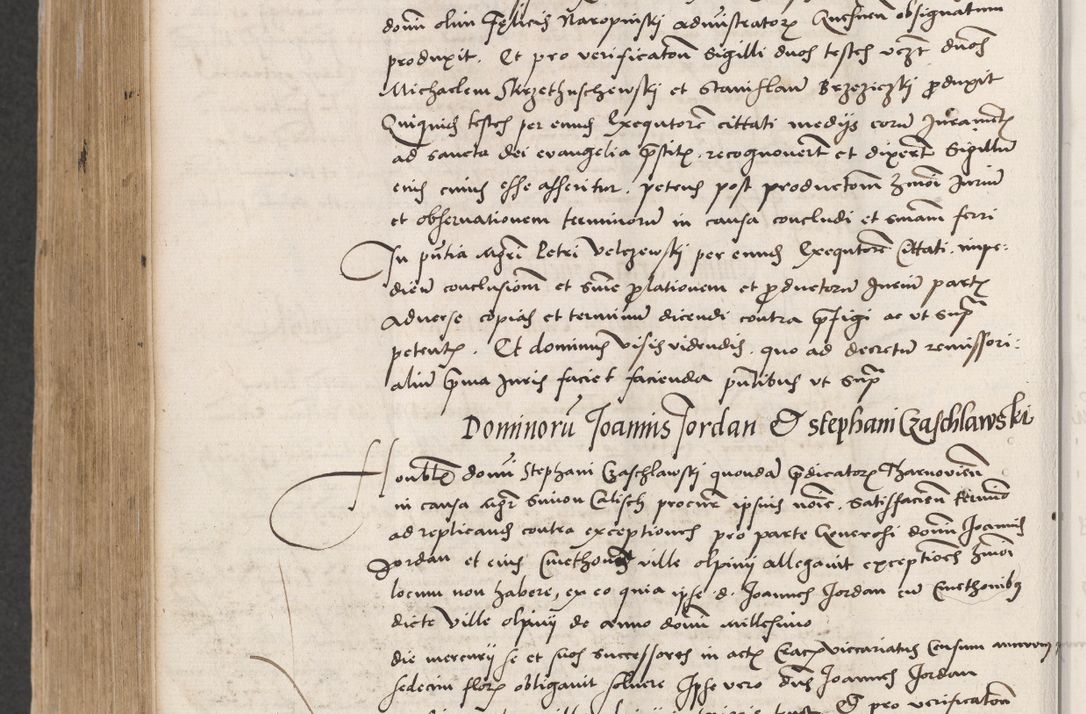 domini olim Felicis Naropinski administratorem Gnesnensem obsignatum
produxit. Et pro verificatom Sigilli duos testes vczt duos
Michaelem Skrzethuschewskj et Stanislaum Brzeziczkj produxit
Quiquid testes per eund Exequtorē cittati medijs eorum Juramēt
ad sancta dei evangelia pstitis recognoverūt et dixerūt Sigillū
eius cuius esse asseritur. petens post productom hmōi Jurium
et observationem terminorū in causa concludi et sniam ferri
In pntia Mgri Petri Velczewskj per eund Exequtorē Cittati. impe-
dien conclusionē et snie prolationem et productorū Jurium parti
adverse copias et terminum dicendi contra pfigi ac ut supra
petentis. Et dominus visis videndis. quo ad decretū remissori-
alium pma Juris faciet facienda pntibus ut supra
Dominorū Joannis Jordan & Stephani Czaschlawski
Honorablis domini Stephani Czaschlawskj quondā predicatoris Tharnovien
in causa Mgr Simon Calisch procurē ipsius noīe. satisfacien termīo
ad replicand contra exceptiones pro parte Generosi domini Joannis
Jordan et eius Cmethonū ville olpinij allegavit exceptiōes hmōi
locum non habere, ex eo quia ipse d. Joannes Jordan cū Cmethonibus
dicte ville olpinij de anno domini Millesimo
die mercurij se et suos successores in actis Craco vicariatus Censum annuum
sedecim flor obligavit solvere Ipse vero dns Joannes Jordan
Et pro verificatom